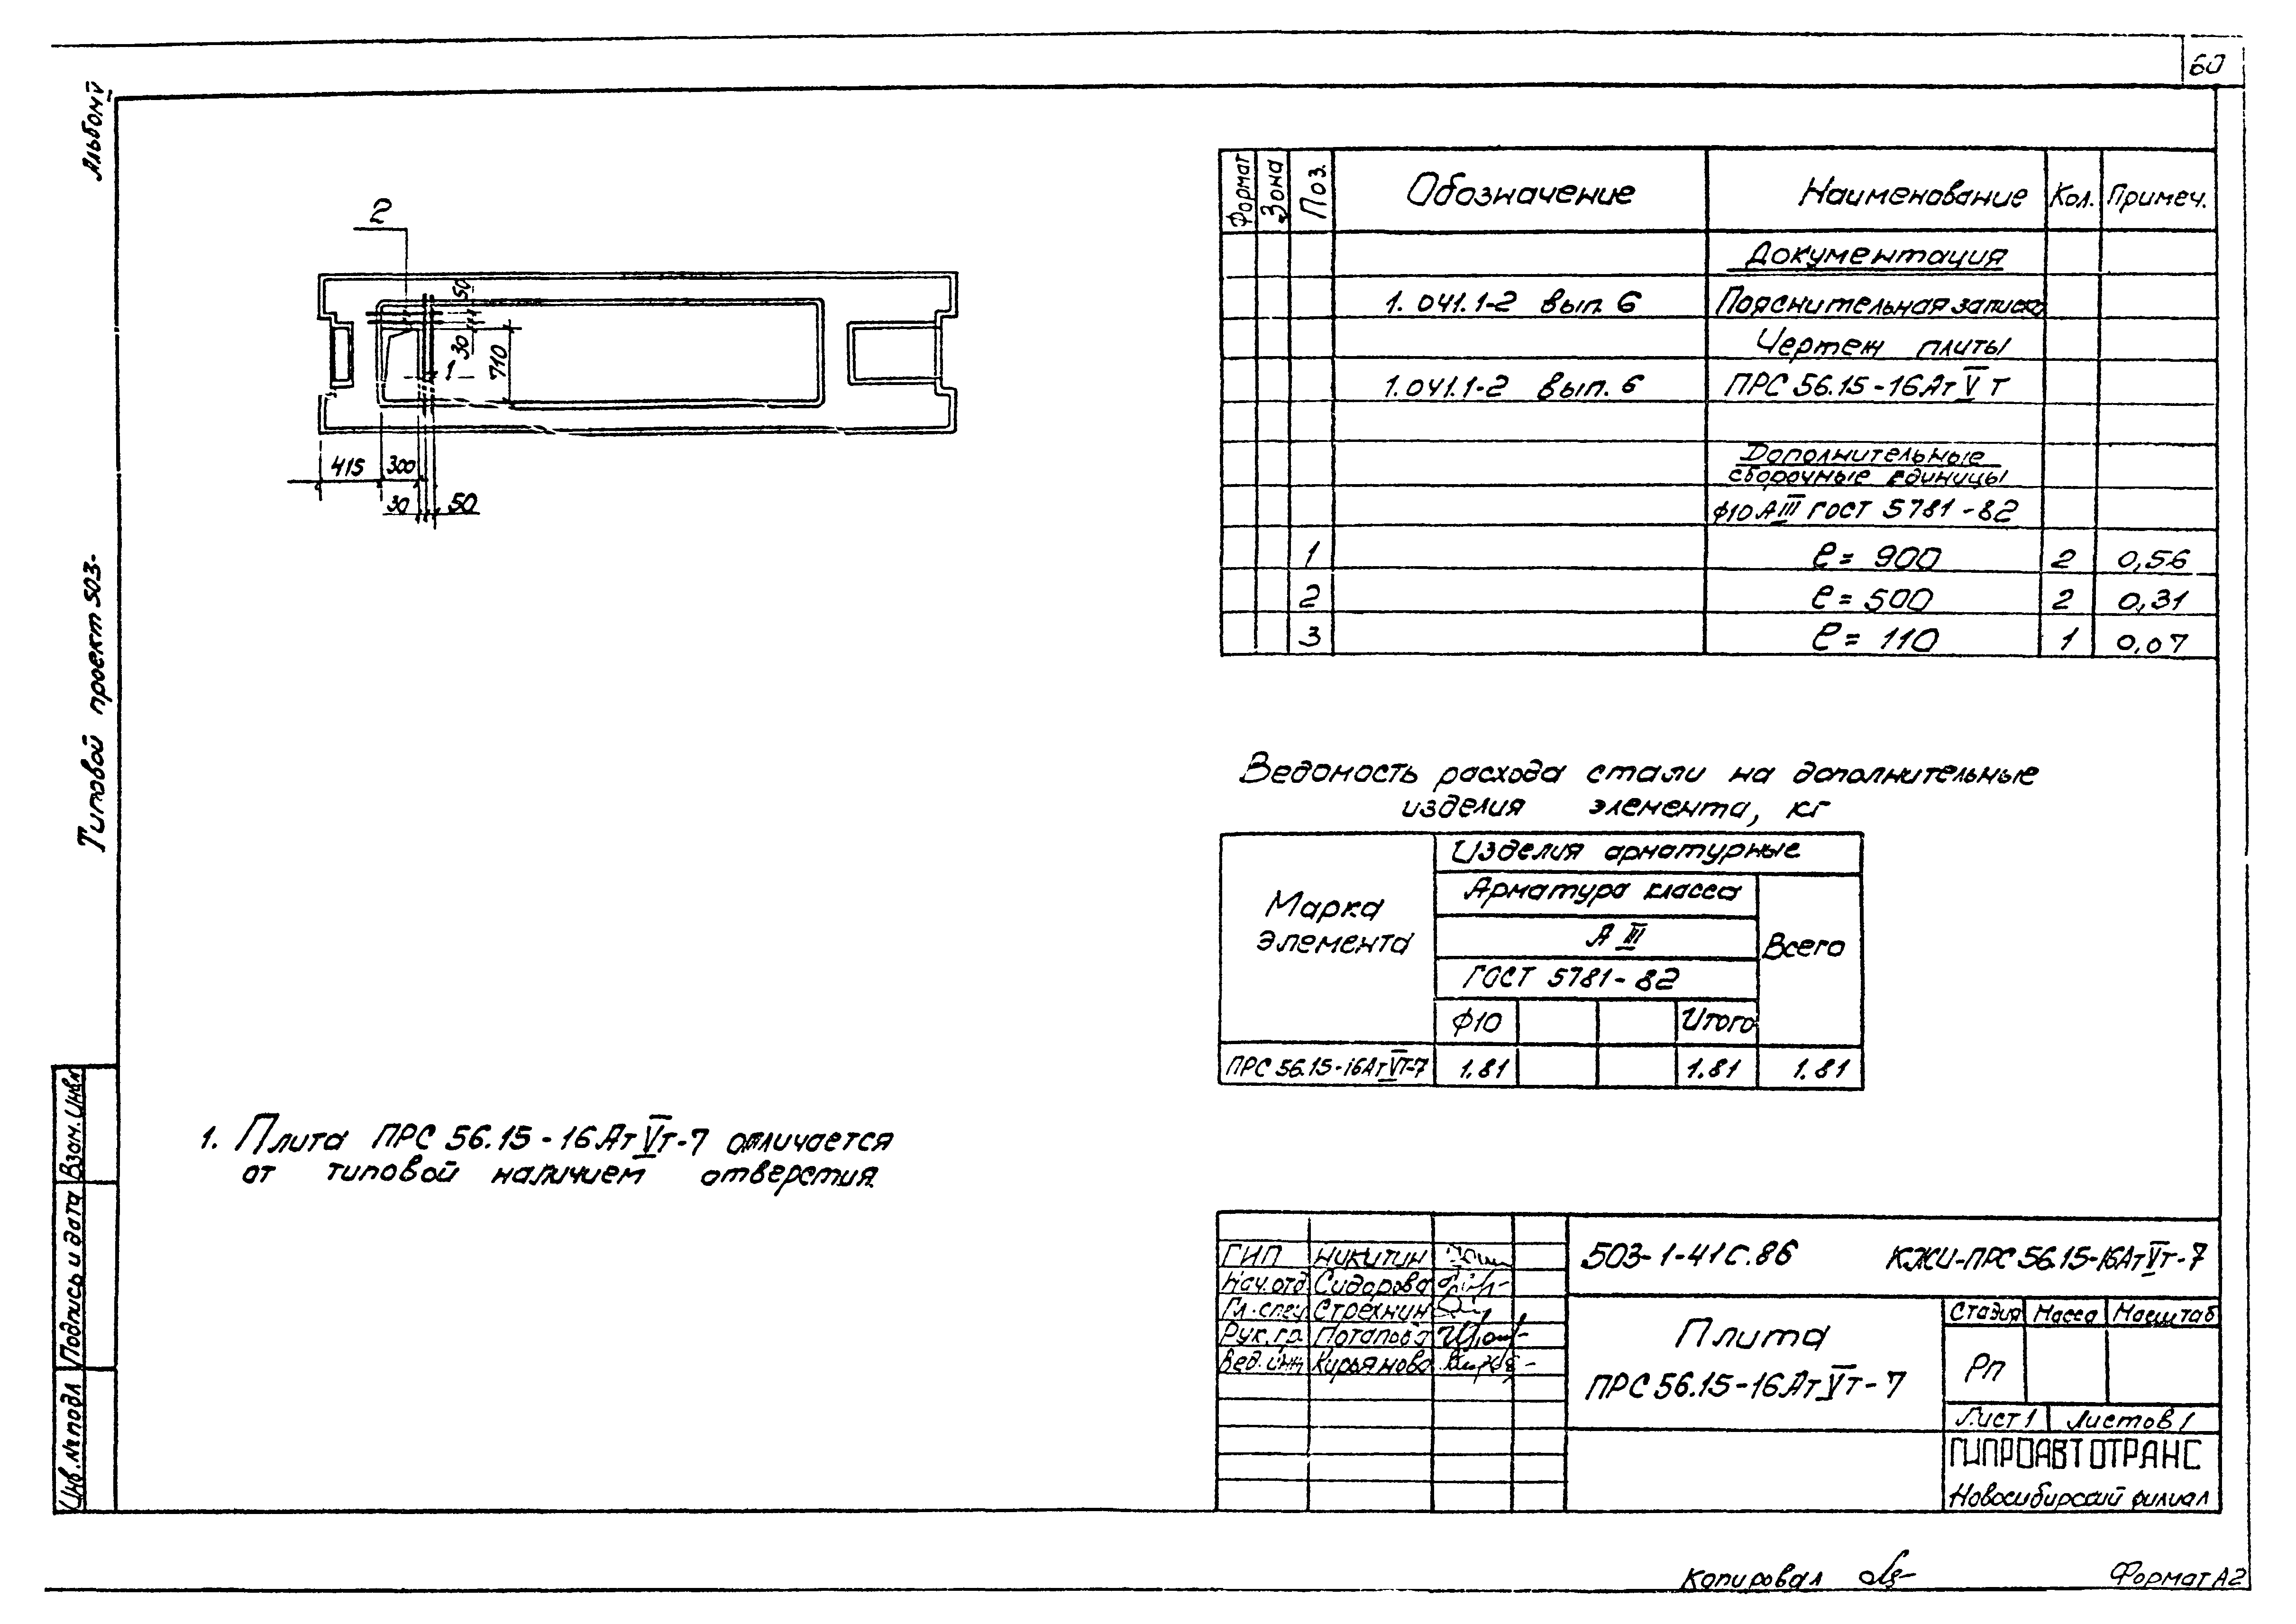 60
Альбом V
Типовой проект 503-
2
50
30
1
710
415
300
30
50
Формат Зона Поз. Обозначение Наименование Кол. Примеч.
Документация
1.041.1-2 вып. 6 Пояснительная записка
Чертеж плиты
1.041.1-2 вып. 6 ПРС 56.15-16АтVт
Дополнительные
сборочные единицы
ф10 АIII ГОСТ 5781-82
1 ℓ= 900 2 0,56
2 ℓ= 500 2 0,31
3 ℓ= 110 1 0,07
Ведомость расхода стали на дополнительные
изделия элемента, кг
Марка
элемента
Изделия арматурные
Арматура класса
А III
ГОСТ 5781-82
Всего
ф10 Итого
ПРС 56.15-16АтVт-7 1.81 1.81 1.81
1. Плита ПРС 56.15-16АтVт-7 отличается
от типовой наличием отверстия.
Взам. Инв№
Подпись и дата
Инв. № подл
ГИП Никитин
Нач. отд Сидорова
Гл. спец. Стрехнин
Рук. гр. Потапова
Вед. инж Кирьянова
503-1-41с.86 КЖИ-ПРС 56.15-16АтVт-7
Плита
ПРС 56.15-16АтVт-7
Стадия Масса Масштаб
Рп
Лист 1 Листов 1
ГИПРОАВТОТРАНС
Новосибирский филиал
Копировал
Формат А2